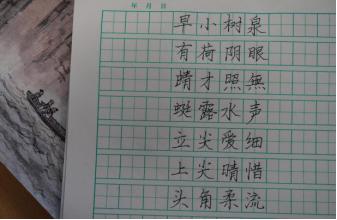 年 月 日
泉眼無声细惜流
树阴照水爱晴柔
小荷才露尖尖角
早有蜻蜓立上头